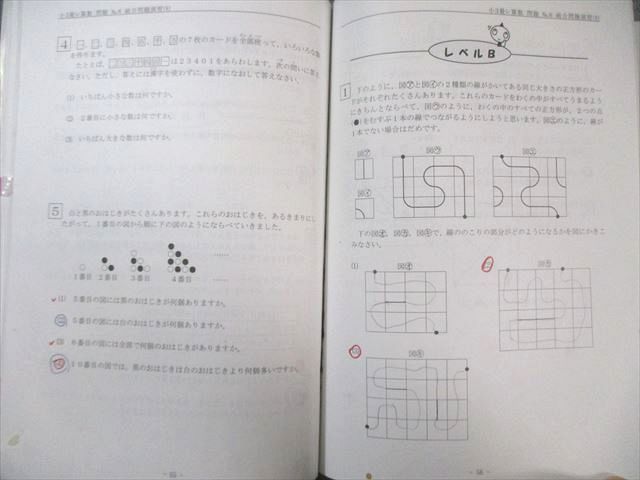 小3算数 問題 No.6 総合問題演習(6)
4
の7枚のカードを全部使って、いろいろな数
を作ります。
たとえば、
は23401をあらわします。次の問いに答え
なさい。ただし、答えには漢字を使わずに、数字になおして答えなさい。
(1) いちばん小さな数は何ですか。
(2) 2番目に小さな数は何ですか。
(3) いちばん大きな数は何ですか。
5
白と黒のおはじきがたくさんあります。これらのおはじきを、あるきまりにし
たがって、1番目の図から順に下の図のようにならべていきました。
1番目 2番目 3番目 4番目
……
(1) 5番目の図には黒のおはじきが何個ありますか。
(2) 5番目の図には白のおはじきが何個ありますか。
(3) 6番目の図には全部で何個のおはじきがありますか。
(4) 10番目の図では、黒のおはじきは白のおはじきより何個多いですか。
小3算数 問題 No.6 総合問題演習(6)
レベルB
1
下のように、図㋐と図㋑の2種類の線がかいてある同じ大きさの正方形のカー
ドがそれぞれたくさんあります。これらのカードをわくの中がすべてうまるよう
にきちんとならべて、図㋒のように、わくの中のすべての正方形が、2つの点
(●)をむすぶ1本の線でつながるようにしようと思います。図㋓のように、線が
1本でない場合はだめです。
図㋐
図㋒
図㋓
図㋑
下の図㋔、図㋕、図㋖で、線ののこりの部分がどのようになるかを図にかきこ
みなさい。
(1)
図㋔
(2)
図㋕
(3)
図㋖